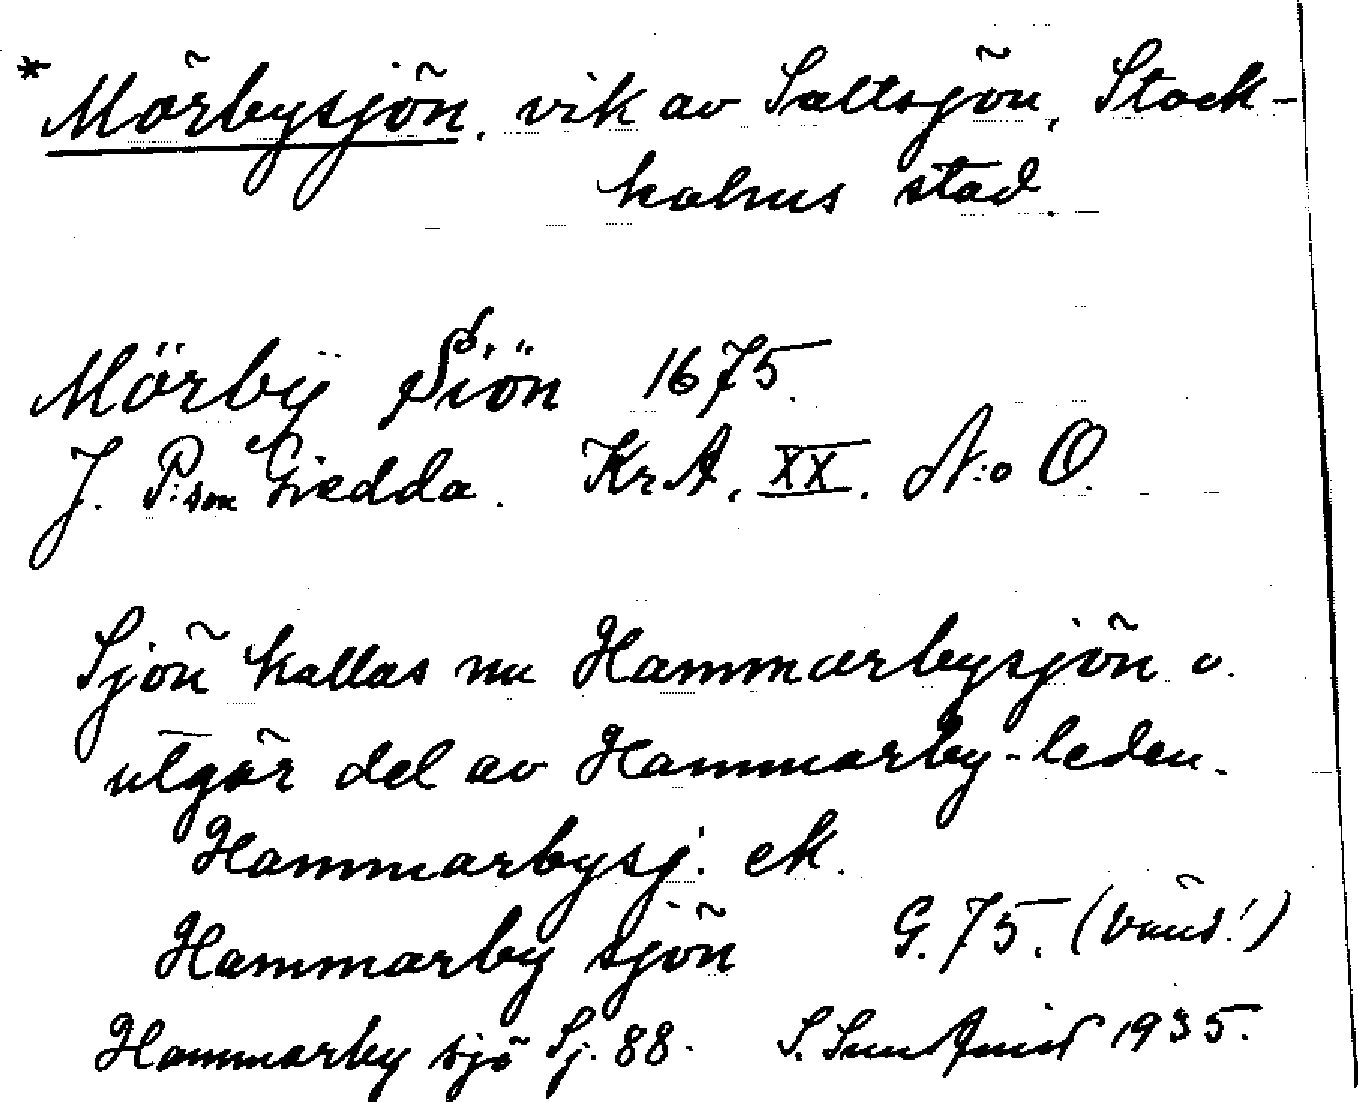 * Mörbysjön, vik av Saltsjön, Stock-
holms stad.
Mörbÿ Siön 1675.
J. P:son Giedda. KrA, XX. N:o O.
Sjön kallas nu Hammarbysjön o.
utgör del av Hammarby-leden.
Hammarbysj. ek.
Hammarby sjön G. 75. (vänd!)
Hammarby sjö Sj. 88. S. 1935.